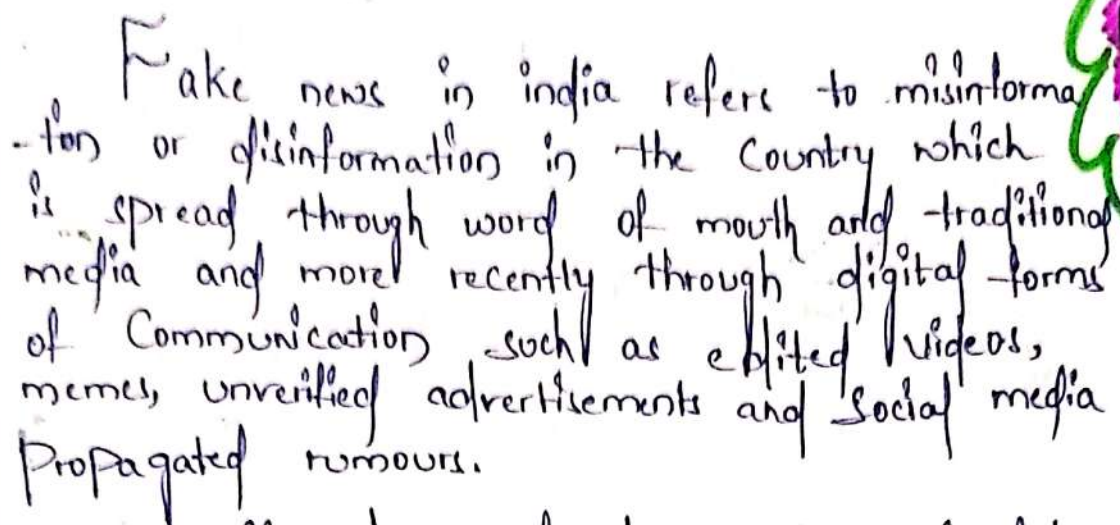 Fake news in india refers to misinforma
-tion or disinformation in the Country which
is spread through word of mouth and traditional
media and more recently through digital forms
of Communication such as edited videos,
memes, unverified advertisements and social media
propagated rumours.